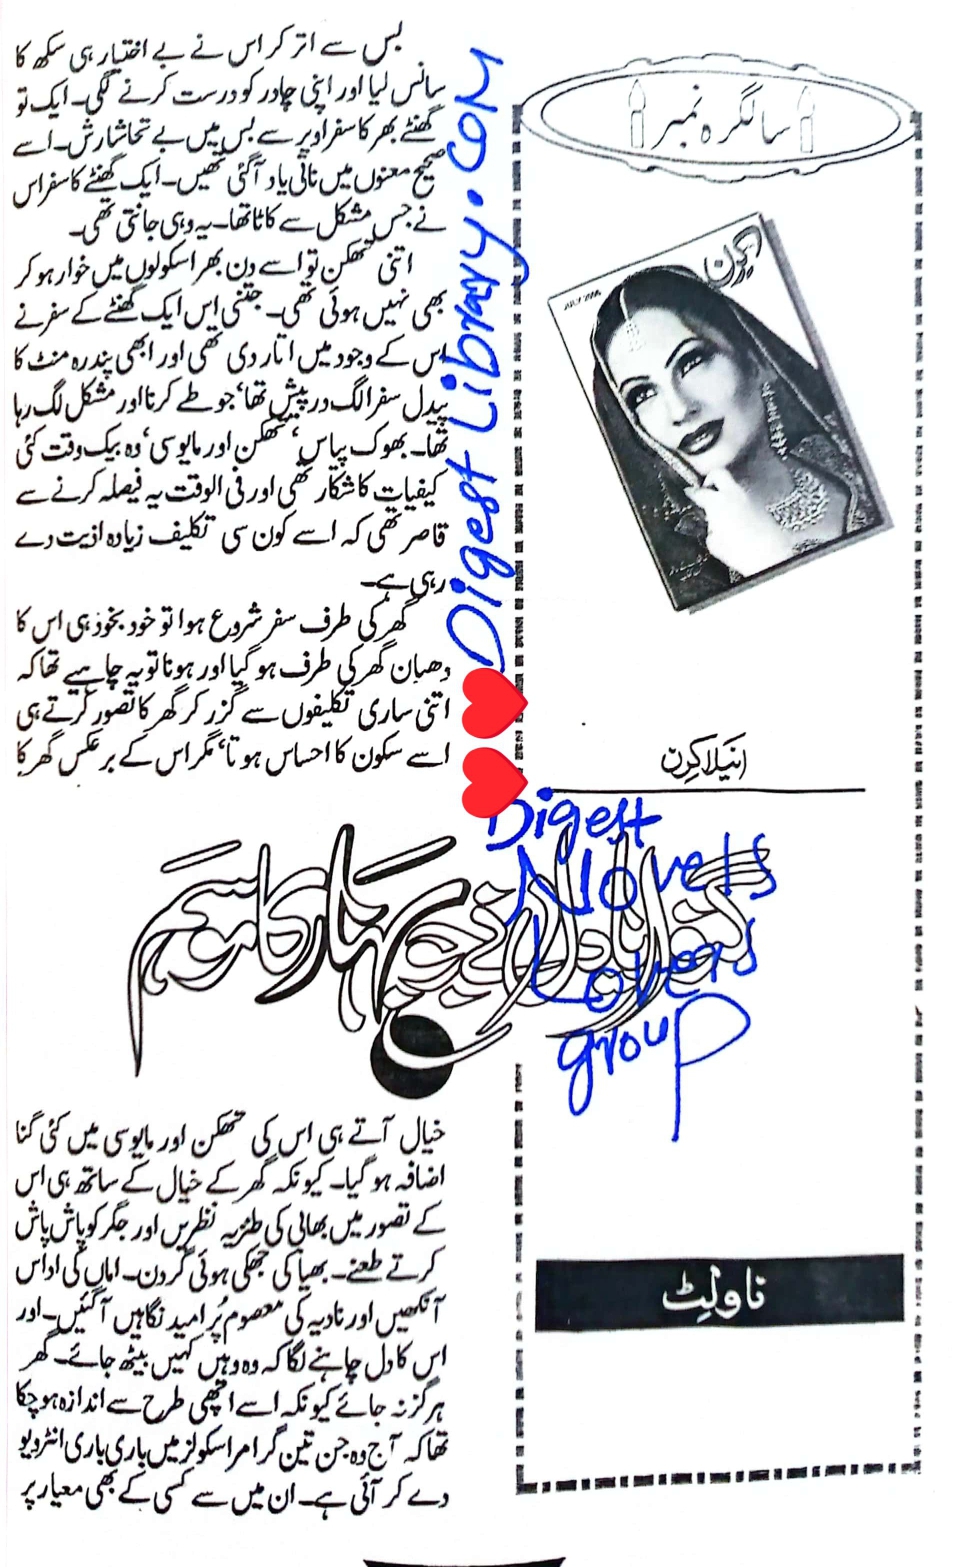 سالگرہ نمبر
کرن
JULY 2006
انیلا کرن
ناولٹ
Digest Library.com
Digest
Novels
Lovers
group
گنوایا دل نے جو بہار کا موسم
بس سے اتر کر اس نے بے اختیار ہی سکھ کا
سانس لیا اور اپنی چادر کو درست کرنے لگی۔ ایک تو
گھنٹے بھر کا سفر اوپر سے بس میں بے تحاشا رش۔ اسے
صحیح معنوں میں نانی یاد آگئی تھیں۔ ایک گھنٹے کا سفر اس
نے جس مشکل سے کاٹا تھا۔ یہ وہی جانتی تھی۔
اتنی تھکن تو اسے دن بھر اسکولوں میں خوار ہو کر
بھی نہیں ہوئی تھی۔ جتنی اس ایک گھنٹے کے سفر نے
اس کے وجود میں اتار دی تھی اور ابھی پندرہ منٹ کا
پیدل سفر الگ درپیش تھا، جو طے کرنا اور مشکل لگ رہا
تھا۔ بھوک پیاس، تھکن اور مایوسی، وہ بیک وقت کئی
کیفیات کا شکار تھی اور فی الوقت یہ فیصلہ کرنے سے
قاصر تھی کہ اسے کون سی تکلیف زیادہ اذیت دے
رہی ہے۔
گھر کی طرف سفر شروع ہوا تو خود بخود ہی اس کا
دھیان گھر کی طرف ہو گیا اور ہونا تو یہ چاہیے تھا کہ
اتنی ساری تکلیفوں سے گزر کر گھر کا تصور کرتے ہی
اسے سکون کا احساس ہوتا، مگر اس کے برعکس گھر کا
خیال آتے ہی اس کی تھکن اور مایوسی میں کئی گنا
اضافہ ہو گیا۔ کیونکہ گھر کے خیال کے ساتھ ہی اس
کے تصور میں بھابی کی طنزیہ نظریں اور جگر کو پاش پاش
کرتے طعنے۔ بھیا کی جھکی ہوئی گردن۔ اماں کی اداس
آنکھیں اور نادیہ کی معصوم پُر امید نگاہیں آگئیں۔ اور
اس کا دل چاہنے لگا کہ وہ وہیں کہیں بیٹھ جائے۔ گھر
ہرگز نہ جائے کیونکہ اسے اچھی طرح سے اندازہ ہو چکا
تھا کہ آج وہ جن تین گرامر اسکولز میں باری باری انٹرویو
دے کر آئی ہے۔ ان میں سے کسی کے بھی معیار پر